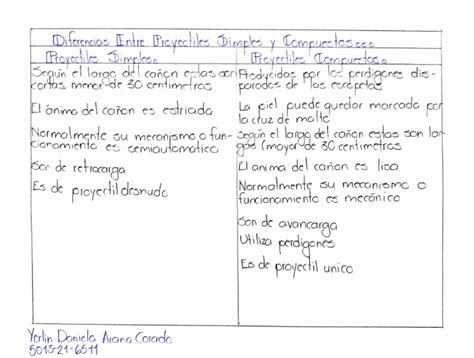 Diferencias Entre Proyectiles Simples y Compuestos...
Proyectiles Simples.
Según el largo del cañon estas son
cortas menor de 30 centimetros
El ánima del cañon es estriada
Normalmente su mecanismo o fun-
cionamiento es semiautomatico
Son de retrocarga
Es de proyectil desnudo
Proyectiles Compuestos.
Producidos por los perdigones dis-
parados de las escopetas
La piel puede quedar marcada por
la cruz de malta
Según el largo del cañon estas son lar-
gas (mayor de 30 centimetros
El anima del cañon es lisa
Normalmente su mecanismo o
funcionamiento es mecánico
Son de avancarga
Utiliza perdigones
Es de proyectil unico
Yerlin Daniela Arana Corado
5015-21-6511